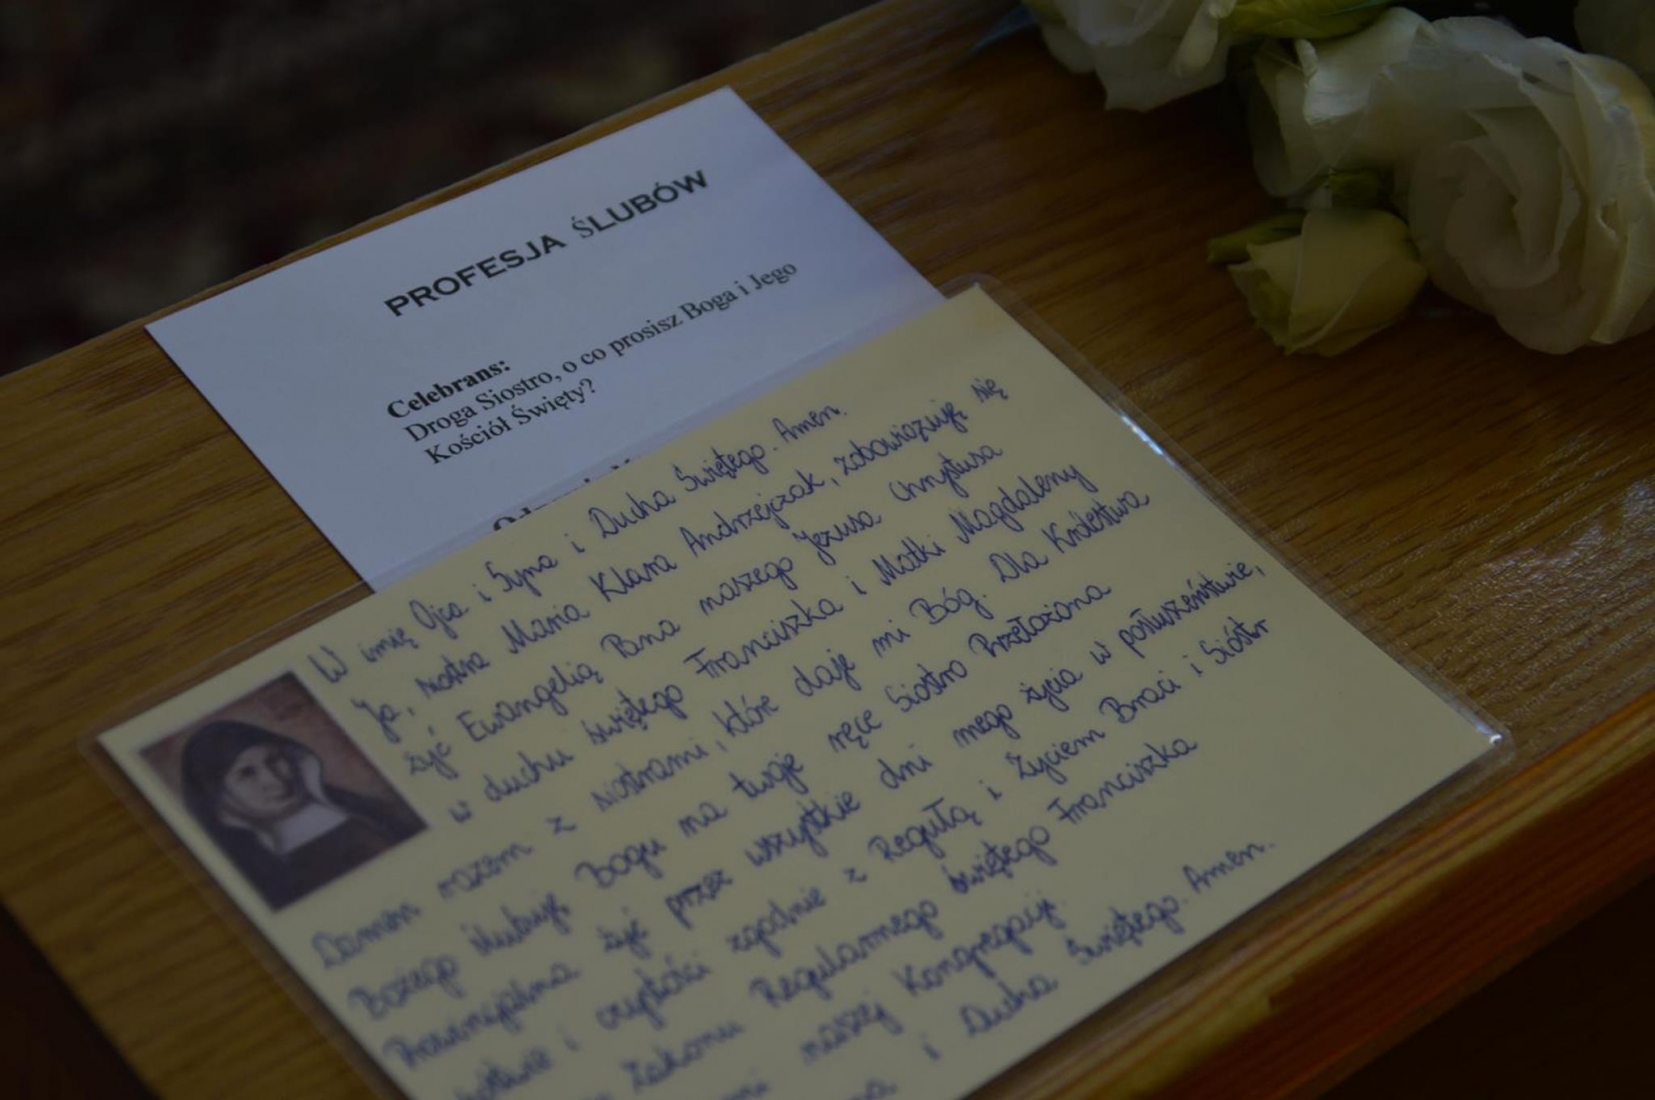 PROFESJA ŚLUBÓW
Celebrans:
Droga Siostro, o co prosisz Boga i Jego
Kościół Święty?
W imię Ojca i Syna i Ducha Świętego. Amen.
Ja, siostra Maria Klara Andrzejczak, zobowiązuję się
żyć Ewangelią Pana naszego Jezusa Chrystusa
w duchu świętego Franciszka i Matki Magdaleny
Damen razem z siostrami, które daje mi Bóg. Dla Królestwa
Bożego ślubuję Bogu na twoje ręce Siostro Przełożona
Prowincjalna żyć przez wszystkie dni mego życia w posłuszeństwie,
i czystości zgodnie z Regułą i Życiem Braci i Sióstr
Zakonu Regularnego świętego Franciszka
naszej Kongregacji.
i Ducha Świętego. Amen.